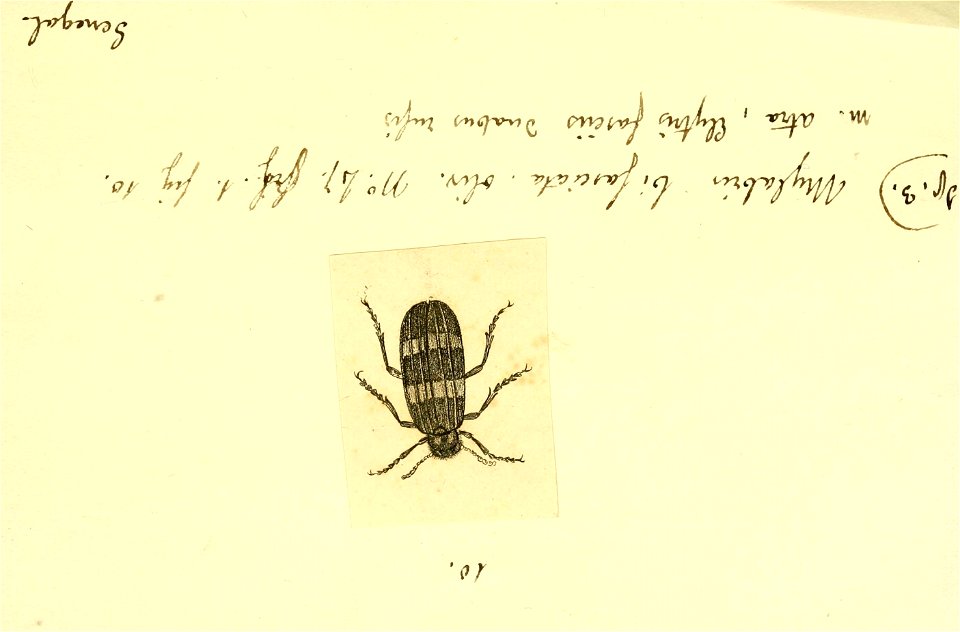 10.
Mylabris bifasciata. Oliv. N°. 1. fig 10.
m. atra, Elytris fasciis duabus rufis
Senegal.